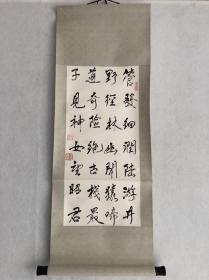 發細潤陸游井
野徑林幽聞猿啼
奇險絕古棧最
子見神女望昭君